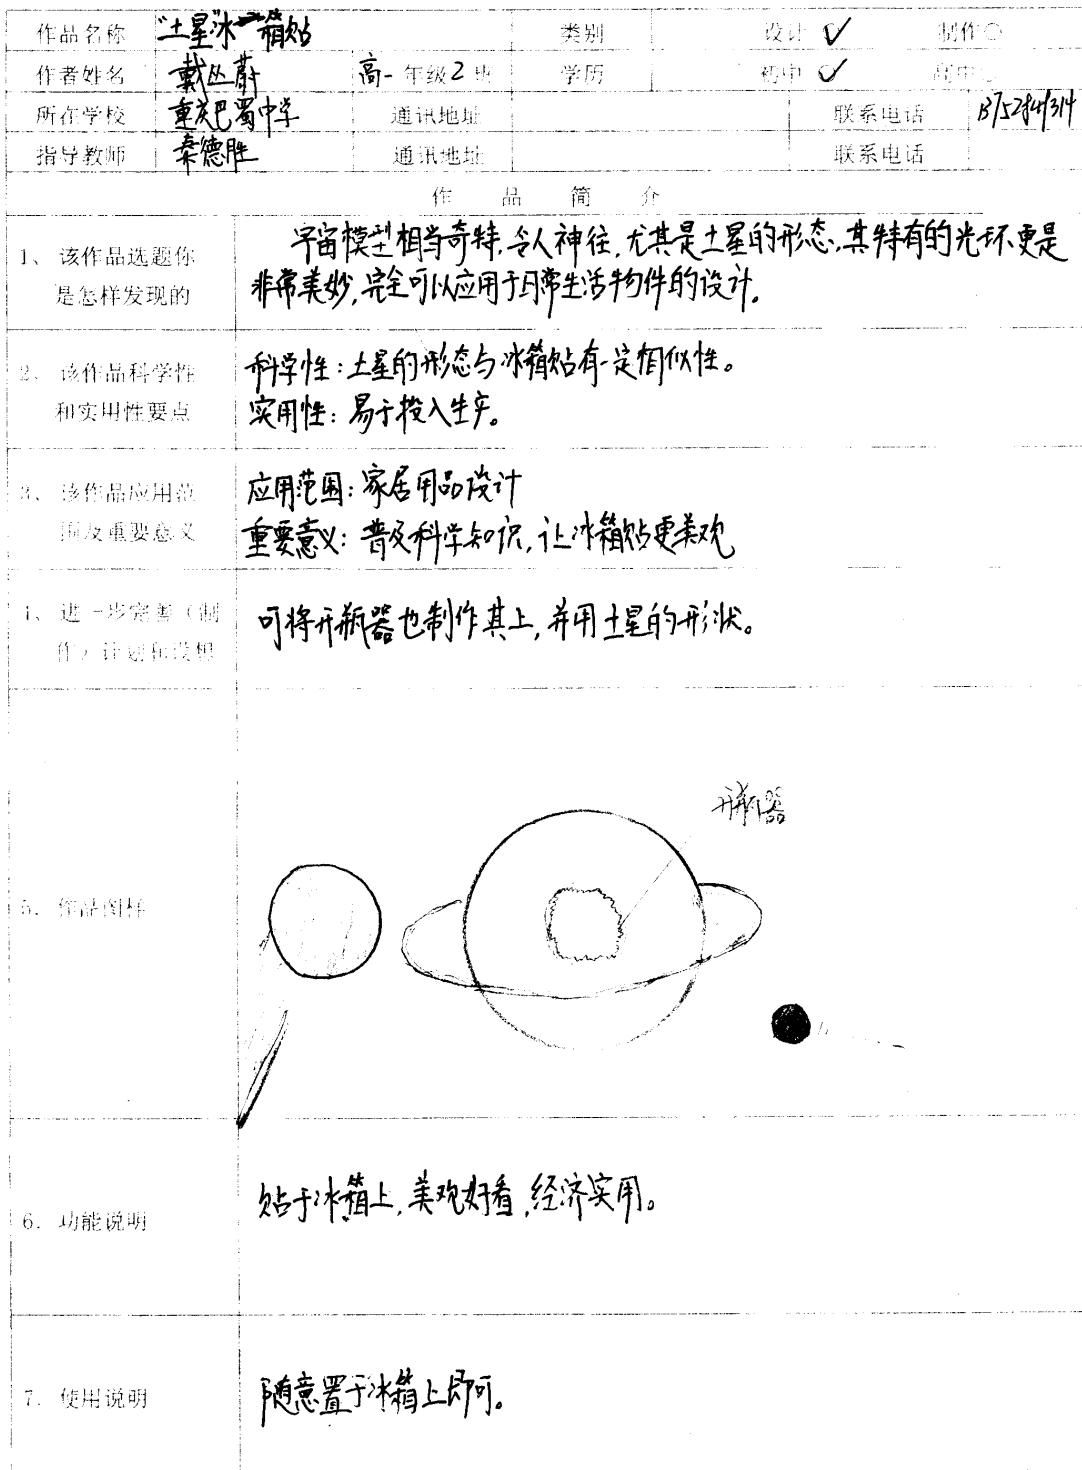 作品名称 "土星"冰箱贴 类别 设计 ✓ 制作○
作者姓名 戴丛蔚 高一年级2班 学历 初中 ✓ 高中○
所在学校 重庆巴蜀中学 通讯地址 联系电话
指导教师 秦德胜 通讯地址 联系电话
作品简介
1、该作品选题你
是怎样发现的
宇宙模型相当奇特,令人神往,尤其是土星的形态,其特有的光环更是
非常美妙,完全可以应用于日常生活物件的设计。
2、该作品科学性
和实用性要点
科学性:土星的形态与冰箱贴有一定相似性。
实用性:易于投入生产。
3、该作品应用范
围及重要意义
应用范围:家居用品设计
重要意义:普及科学知识,让冰箱贴更美观
4、进一步完善(制
作)计划和设想
可将开瓶器也制作其上,并用土星的形状。
5.作品图样
开瓶器
6.功能说明
贴于冰箱上,美观好看,经济实用。
7.使用说明
随意置于冰箱上即可。